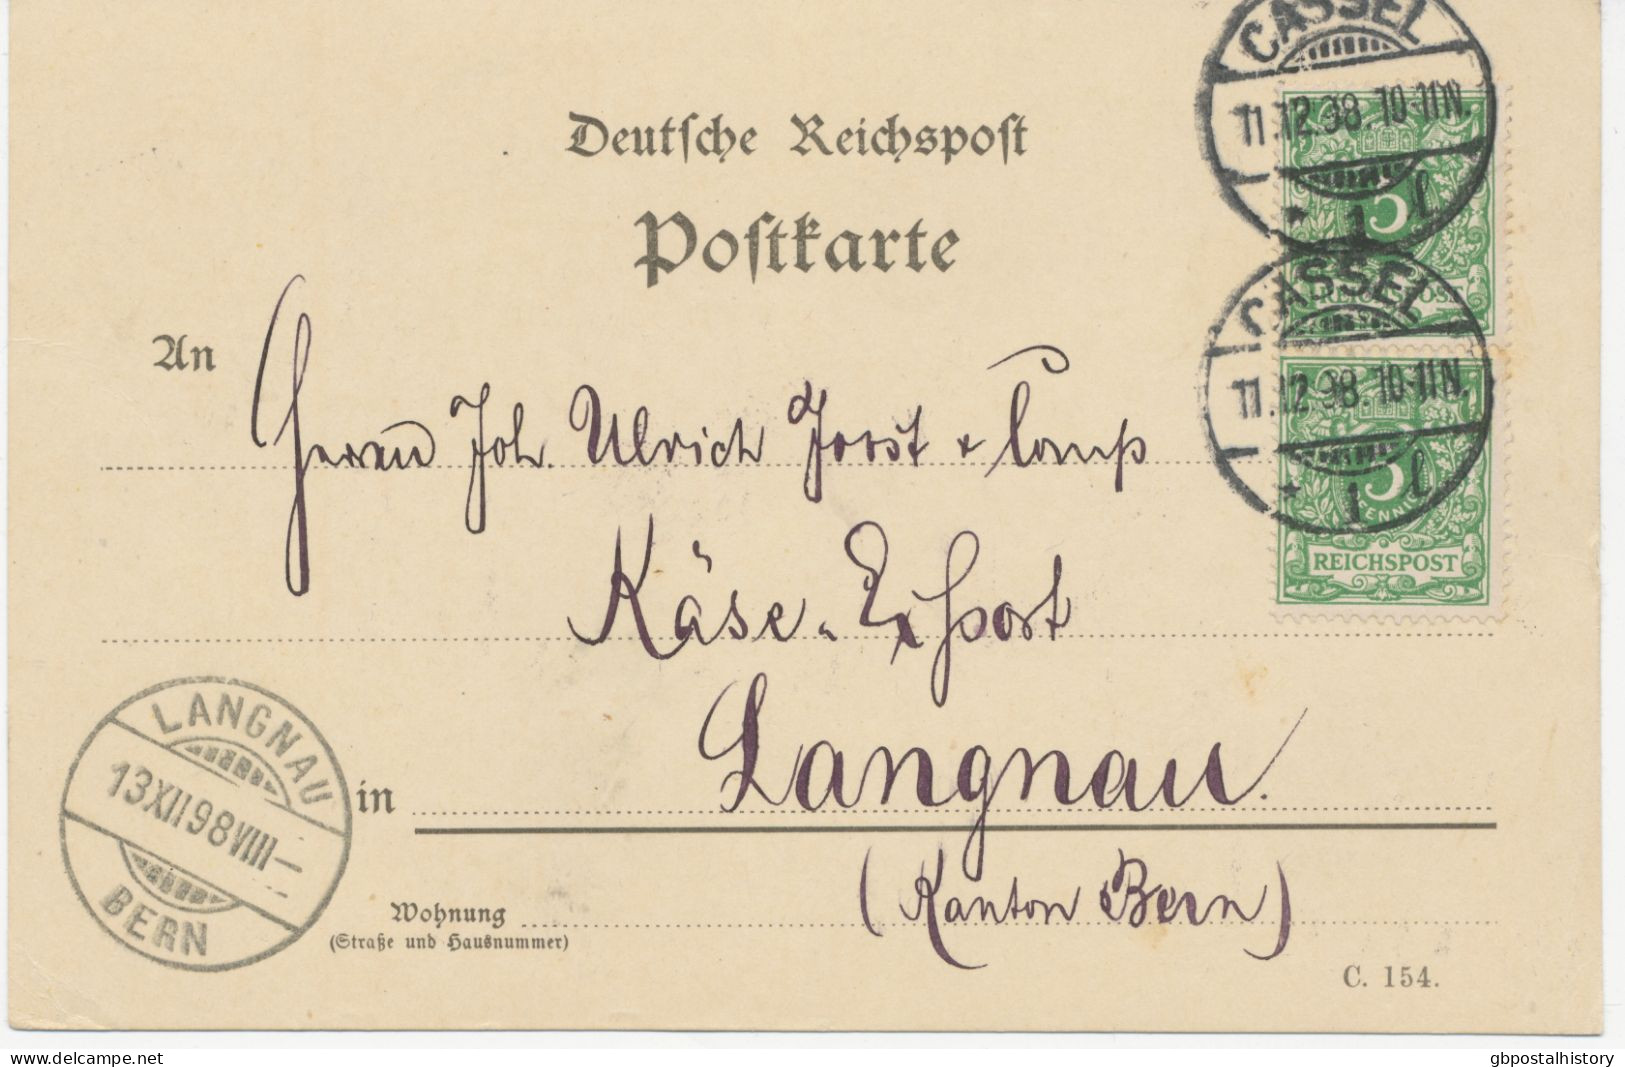 Deutsche Reichspost
Postkarte
CASSEL
11.12.98.10-11N.
* 1 l
5
REICHSPOST
CASSEL
11.12.98.10-11N.
* 1 l
5
PFENNIG
REICHSPOST
An
Herren Joh. Ulrich Joost & Comp
Käse-Export
in Langnau.
(Kanton Bern)
LANGNAU
13XII98VIII-
BERN
Wohnung
(Straße und Hausnummer)
C. 154.
www.delcampe.net
gbpostalhistory